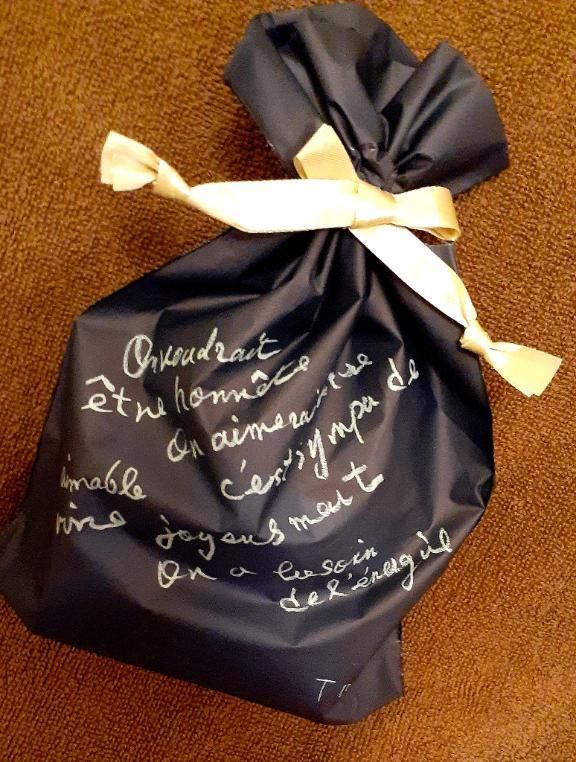 On voudrait
être honnête
On aimerait rire
c'est sympa de
aimable
rire joyeusment
On a besoin
de l'énergie
T